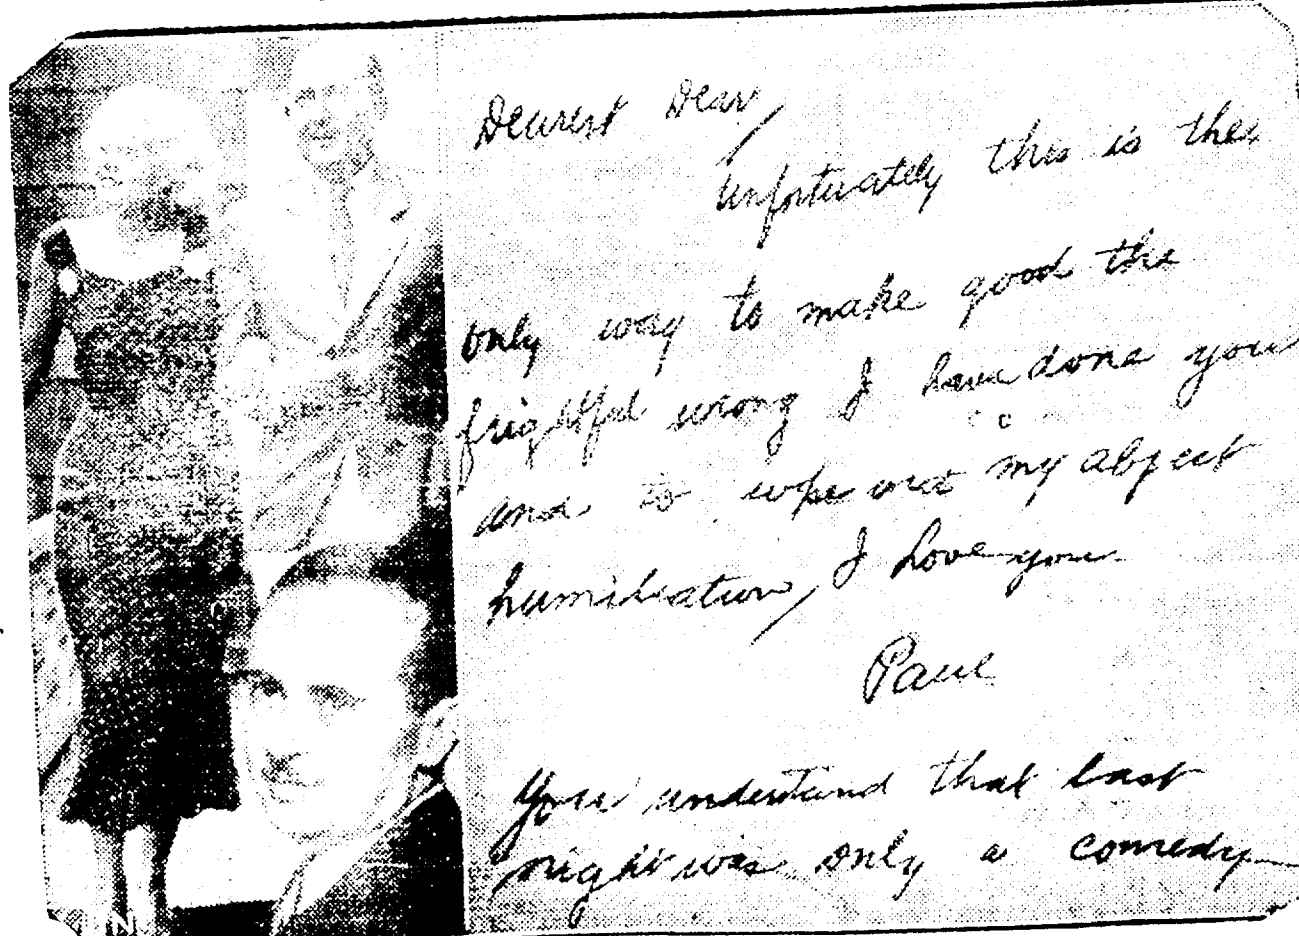 Dearest Dear,
Unfortuately this is the
only way to make good the
frightful wrong I have done you
and to wipe out my abject
humiliation, I love you
Paul
You understand that last
night was only a comedy